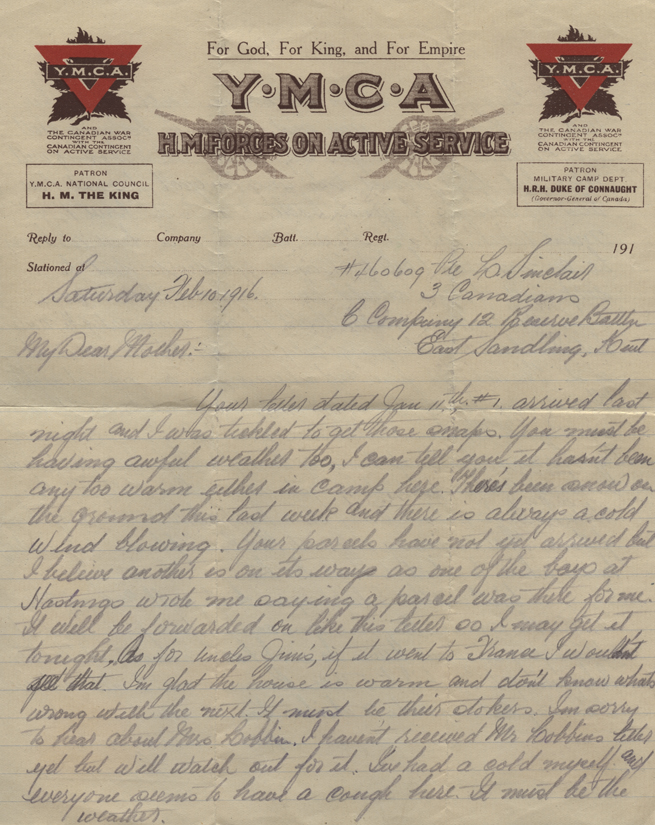 For God, For King, and For Empire
Y·M·C·A
H.M. FORCES ON ACTIVE SERVICE
Y.M.C.A.
AND
THE CANADIAN WAR
CONTINGENT ASSOCT
WITH THE
CANADIAN CONTINGENT
ON ACTIVE SERVICE
PATRON
Y.M.C.A. NATIONAL COUNCIL
H. M. THE KING
Y.M.C.A.
AND
THE CANADIAN WAR
CONTINGENT ASSOCT
WITH THE
CANADIAN CONTINGENT
ON ACTIVE SERVICE
PATRON
MILITARY CAMP DEPT.
H.R.H. DUKE OF CONNAUGHT
(Governor-General of Canada)
Reply to Company Batt. Regt. 191
Stationed at
#460609 Pte Sinclair
Saturday Feb 10 1916.
3 Canadians
C Company 12 Reserve Battln
My Dear Mother:-
East Sandling, Kent
Your letter dated Jan 11th #1. arrived last
night and I was tickled to get those snaps. You must be
having awful weather too, I can tell you it hasn't been
any too warm either in camp here. There's been snow on
the ground this last week and there is always a cold
wind blowing. Your parcels have not yet arrived but
I believe another is on its way as one of the boys at
Hastings wrote me saying a parcel was there for me.
It will be forwarded on like this letter so I may get it
tonight. As for Uncle Jim's, if it went to France I wouldn't
get that. I'm glad the house is warm and don't know what's
wrong with the next. It must be their stokers. I'm sorry
to hear about Mrs Hobbin. I haven't received Mr Hobbins letter
yet but will watch out for it. I've had a cold myself and
everyone seems to have a cough here. It must be the
weather.